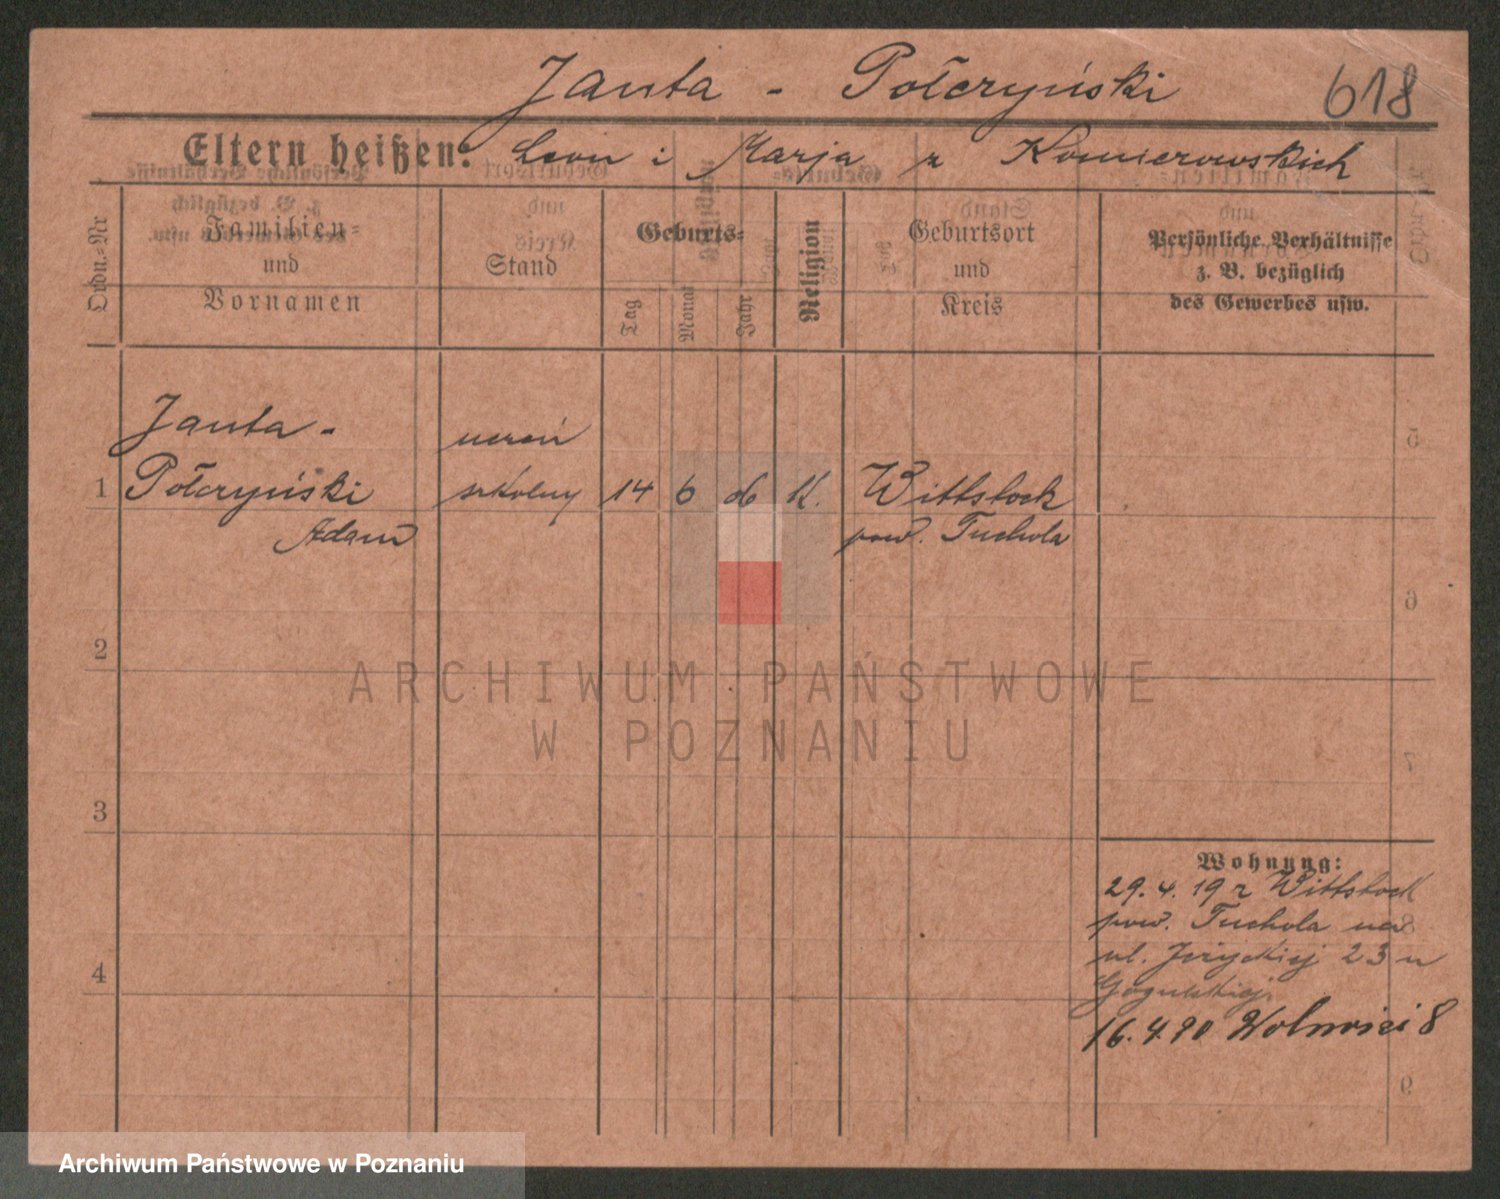 Janta - Połczyński
618
Eltern heißen: Leon i Marja z Komierowskich
Ordn.-Nr
Familien-
und
Vornamen
Stand
Geburts-
Tag
Monat
Jahr
Religion
Geburtsort
und
Kreis
Persönliche Verhältnisse
z. B. bezüglich
des Gewerbes usw.
Janta -
uczeń
1 Połczyński szkolny 14 6 06 K. Wittstock
Adam pow. Tuchola
2
3
4
Wohnung:
29.4.19 z Wittstock
pow. Tuchola na
ul. Jeżyckiej 23 u
16.4.20 Wolności 8
ARCHIWUM PAŃSTWOWE
W POZNANIU
Archiwum Państwowe w Poznaniu